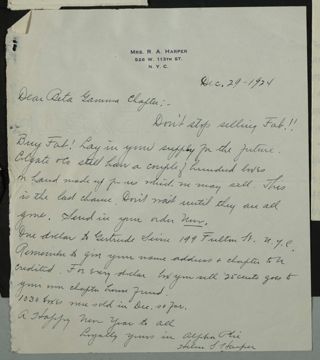 MRS. R. A. HARPER
526 W. 113TH ST.
N. Y. C.
Dec. 29-1924
Dear Beta Gamma Chapter:-
Don't stop selling Fab.!!
Buy Fab! Lay in your supply for the future.
Colgate still have a couple hundred boxes
on hand made up for us which we may sell. This
is the last chance. Don't wait until they are all
gone. Send in your order Now.
One dollar to Gertrude 199 Fulton St. N.Y.C.
Remember to give your name address & chapter to be
credited. For every dollar box you sell 25 cents goes to
your own chapter fund.
1030 boxes were sold in Dec. so far.
A Happy New Year to all
Loyally yours in Alpha Phi
Harper